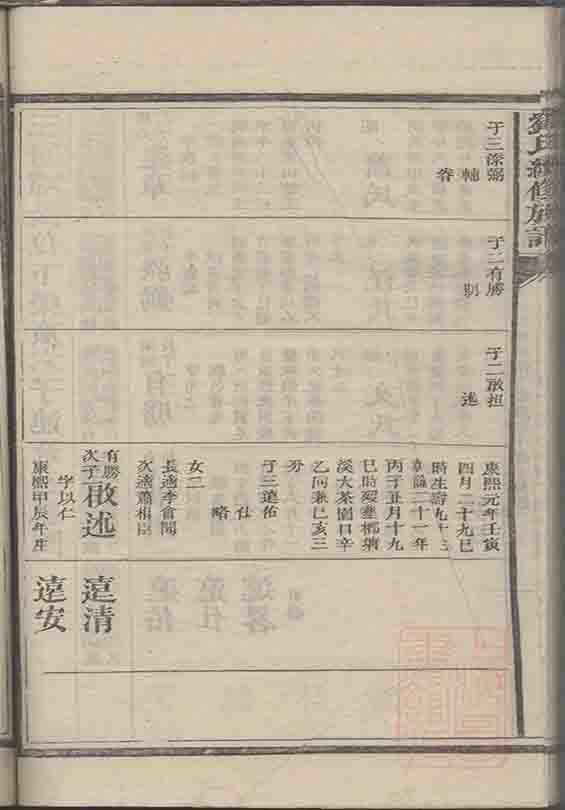 劉氏續修族譜
子三深弼
輔
睿
子二有勝
則
子二啟坦
述
康熙元年壬寅
四月二十九巳
時生壽九十三
乾隆二十一年
丙子五月十九
巳時歿塟櫛塘
溪大茶園口辛
乙向兼巳亥三
分
子三遠佑
仕
略
女二
長適李會聞
次適蕭相臣
有勝次子啟述
字以仁
康熙甲辰年生
遠清
遠安